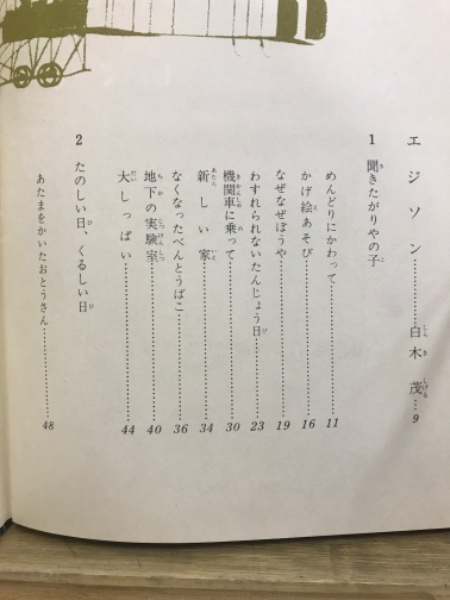 エジソン…………白木茂…9
1 聞きたがりやの子
めんどりにかわって…………11
かげ絵あそび…………16
なぜなぜぼうや…………19
わすれられないたんじょう日…………23
機関車に乗って…………30
新しい家…………34
なくなったべんとうばこ…………36
地下の実験室…………40
大しっぱい…………44
2 たのしい日、くるしい日
あたまをかいたおとうさん…………48